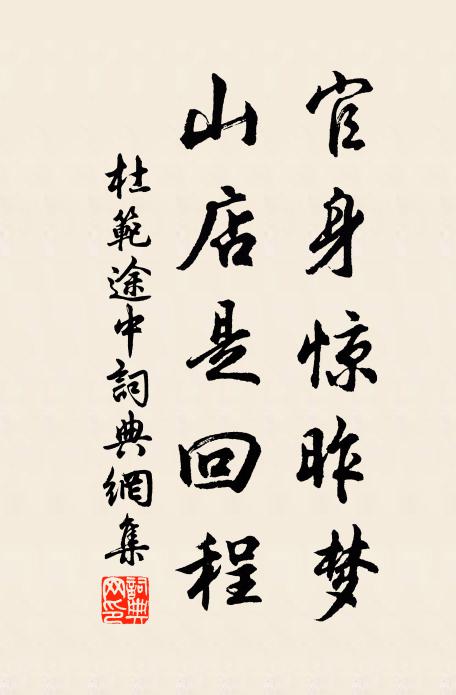 官身惊昨梦
山店是回程
杜範途中詞典網集
詞典
网印